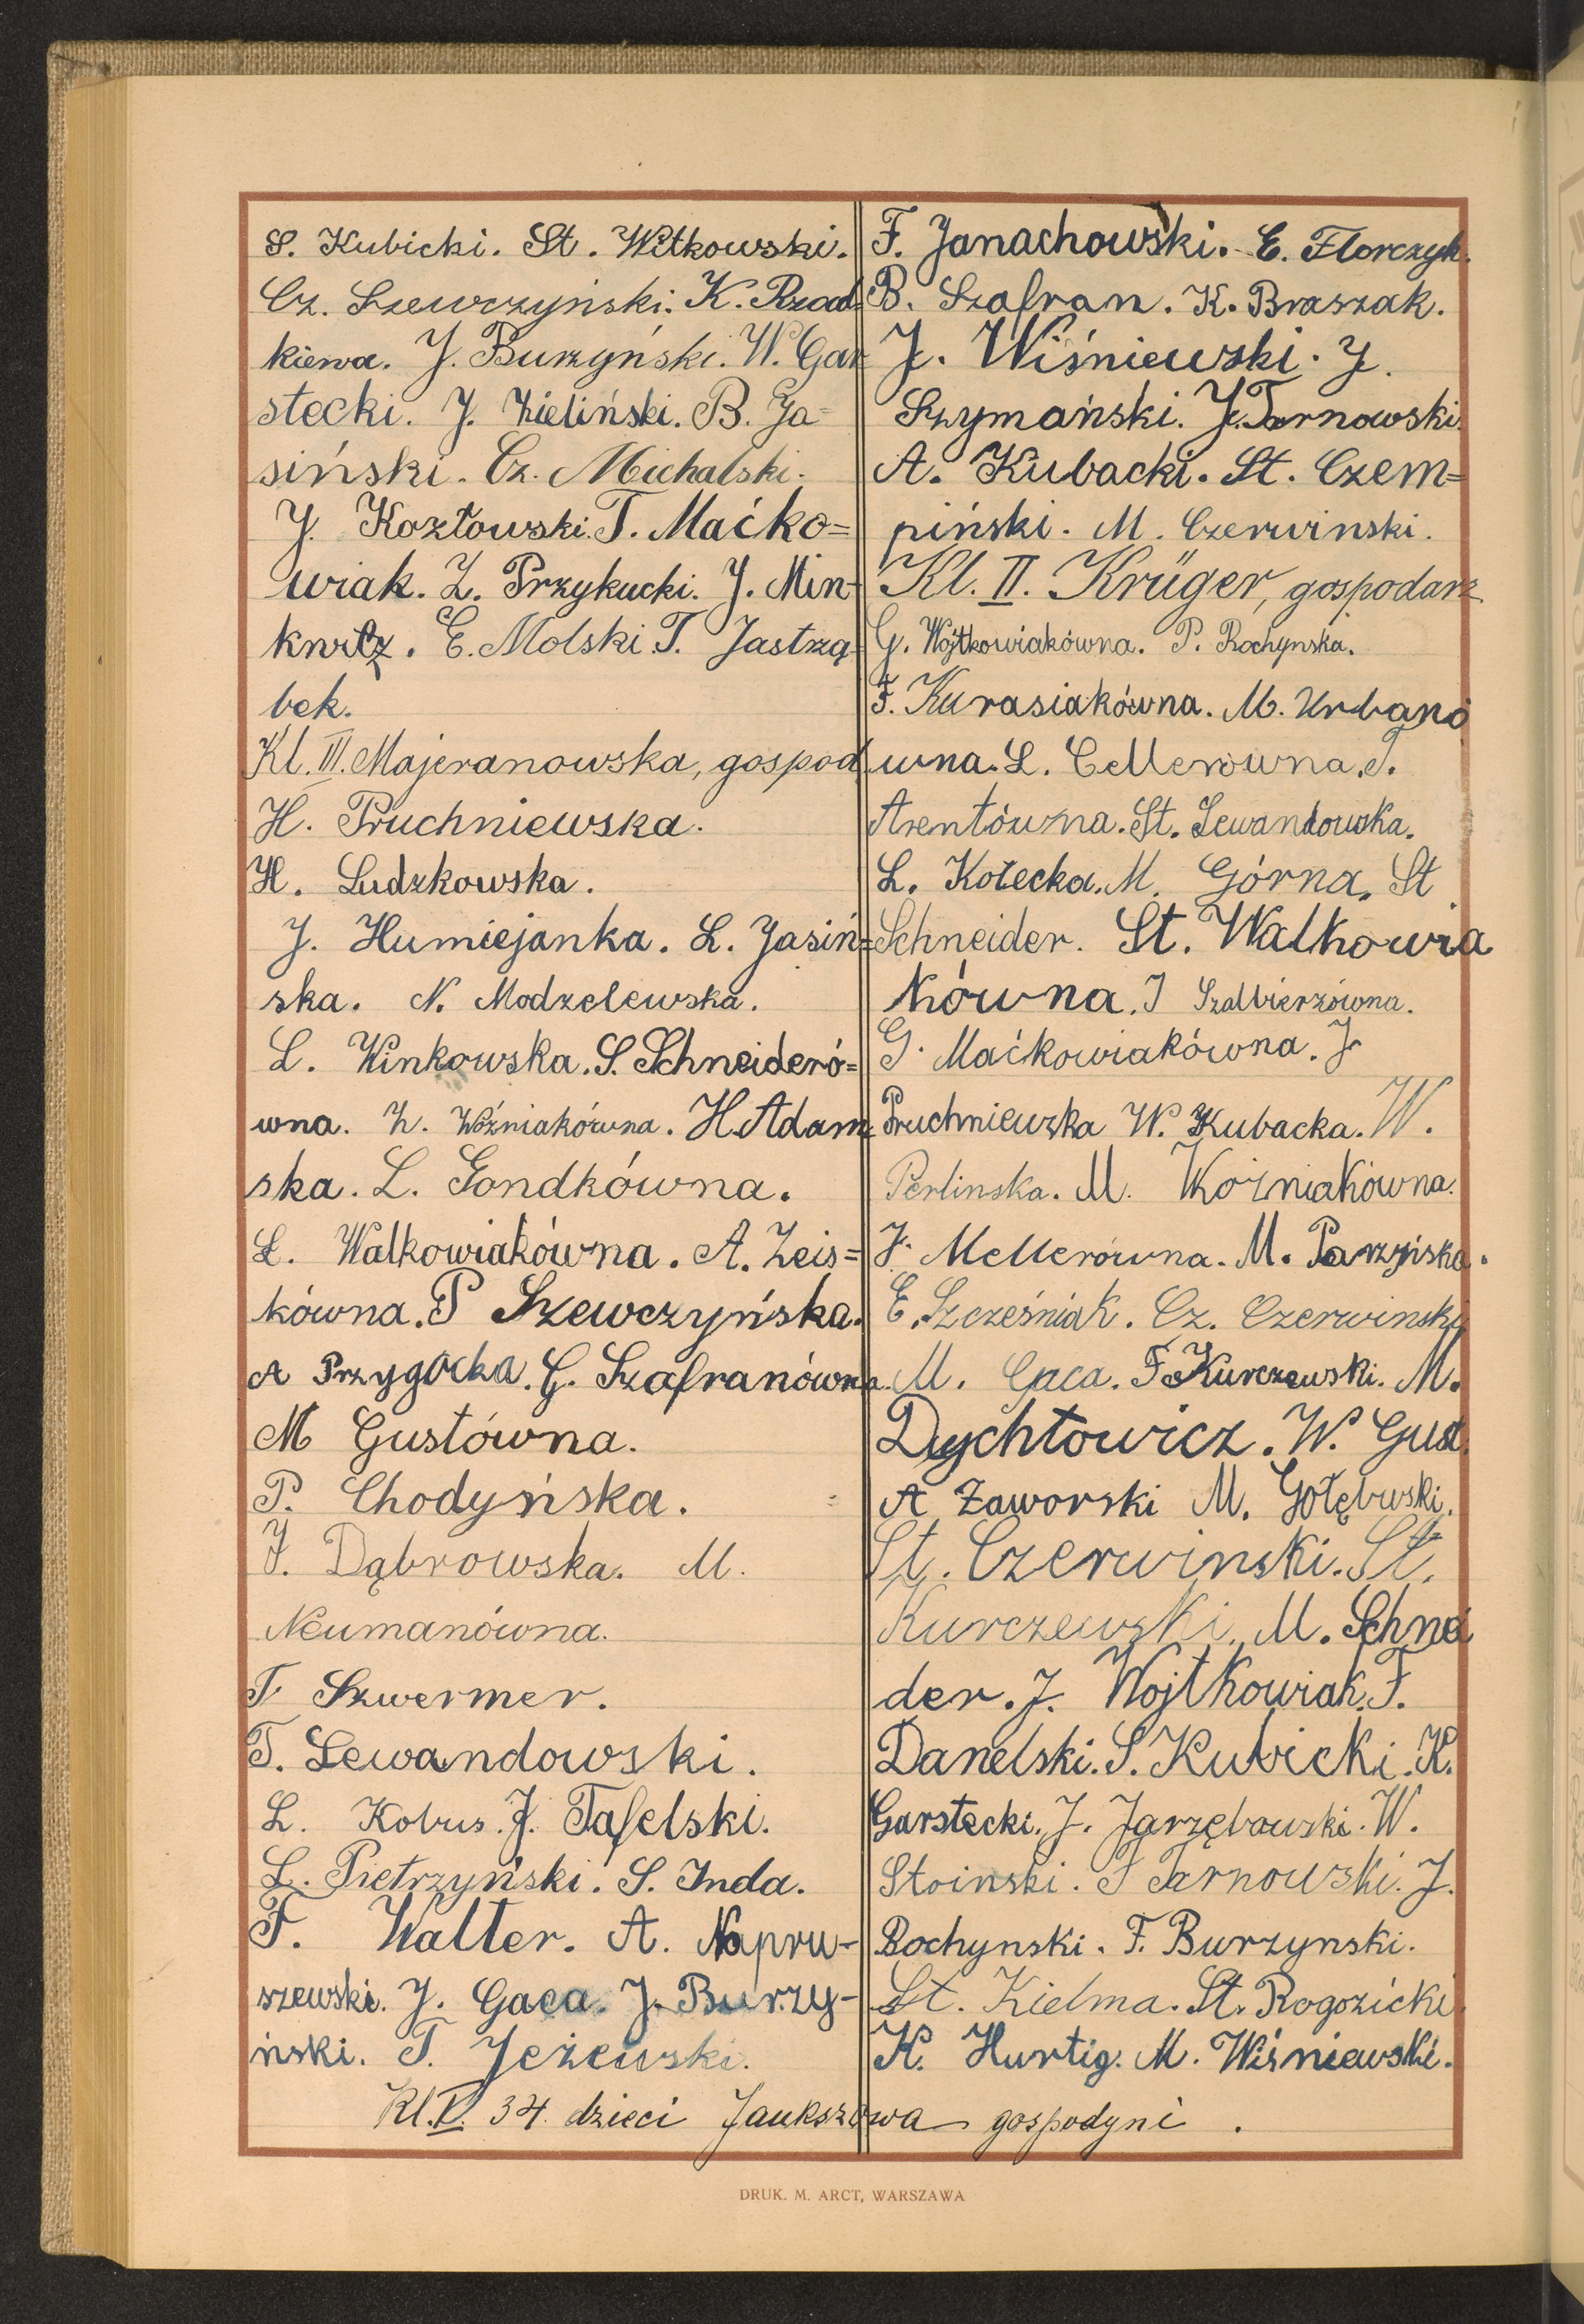 S. Kubicki. St. Witkowski.
Cz. Szewczyński. K. Rzad=
kiewa. J. Burzyński. W. Gar
stecki. J. Zieliński. B. Ja=
siński. Cz. Michalski.
J. Kozłowski. T. Maćko=
wiak. Z. Przykucki. J. Min-
kwitz. E. Molski. T. Jastrzą-
bek.
Kl. III. Majeranowska, gospod.
H. Pruchniewska.
H. Ludzkowska.
J. Humiejanka. L. Jasiń=
ska. N. Modzelewska.
L. Winkowska. S. Schneideró=
wna. Z. Woźniakówna. H. Adam=
ska. L. Gondkówna.
L. Walkowiakówna. A. Zeis=
kówna. P Szewczyńska.
A Przygocka. G. Szafranówna.
M Gustówna.
P. Chodyńska.
J. Dąbrowska. M.
Neumanówna.
T Szwermer.
T. Lewandowski.
L. Kobus. J. Tafelski.
L. Pietrzyński. S. Inda.
F. Walter. A. Napru-
szewski. J. Gaca. J. Burzy-
ński. T. Jeżewski.
F. Janachowski. E. Florczyk.
B. Szafran. K. Braszak.
J. Wiśniewski. J.
Szymański. J. Tarnowski.
A. Kubacki. St. Czem=
piński. M. Czerwinski.
Kl. II. Krüger, gospodarz
G. Wójtkowiakówna. P. Rochynska.
F. Kurasiakówna. M. Urbanó
wna. L. Cellerówna. T.
Arentówna. St. Lewandowska.
L. Kołecka. M. Górna. St
Schneider. St. Walkowia
kówna. J Szalbierzówna.
G. Maćkowiakówna. J
Pruchniewska W. Kubacka. W.
Perlinska. M. Woźniakówna.
J. Mellerówna. M. Parzyńska.
E. Szcześniak. Cz. Czerwinski
M. Gaca. F Kurczewski. M.
Dychtowicz. W. Gust.
A Zaworski M. Gołębwski.
St. Czerwinski. St.
Kurczewski. M. Schnei
der. J. Wojtkowiak. F.
Danelski. S. Kubicki. K.
Garstecki. J. Jarzębowski. W.
Stoinski. F Tarnowski. J.
Rochynski. F. Burzynski.
St. Kielma. St. Rogozicki
K. Hurtig. M. Wiśniewski.
Kl. V. 34 dzieci Jaukszowa gospodyni.
DRUK. M. ARCT, WARSZAWA